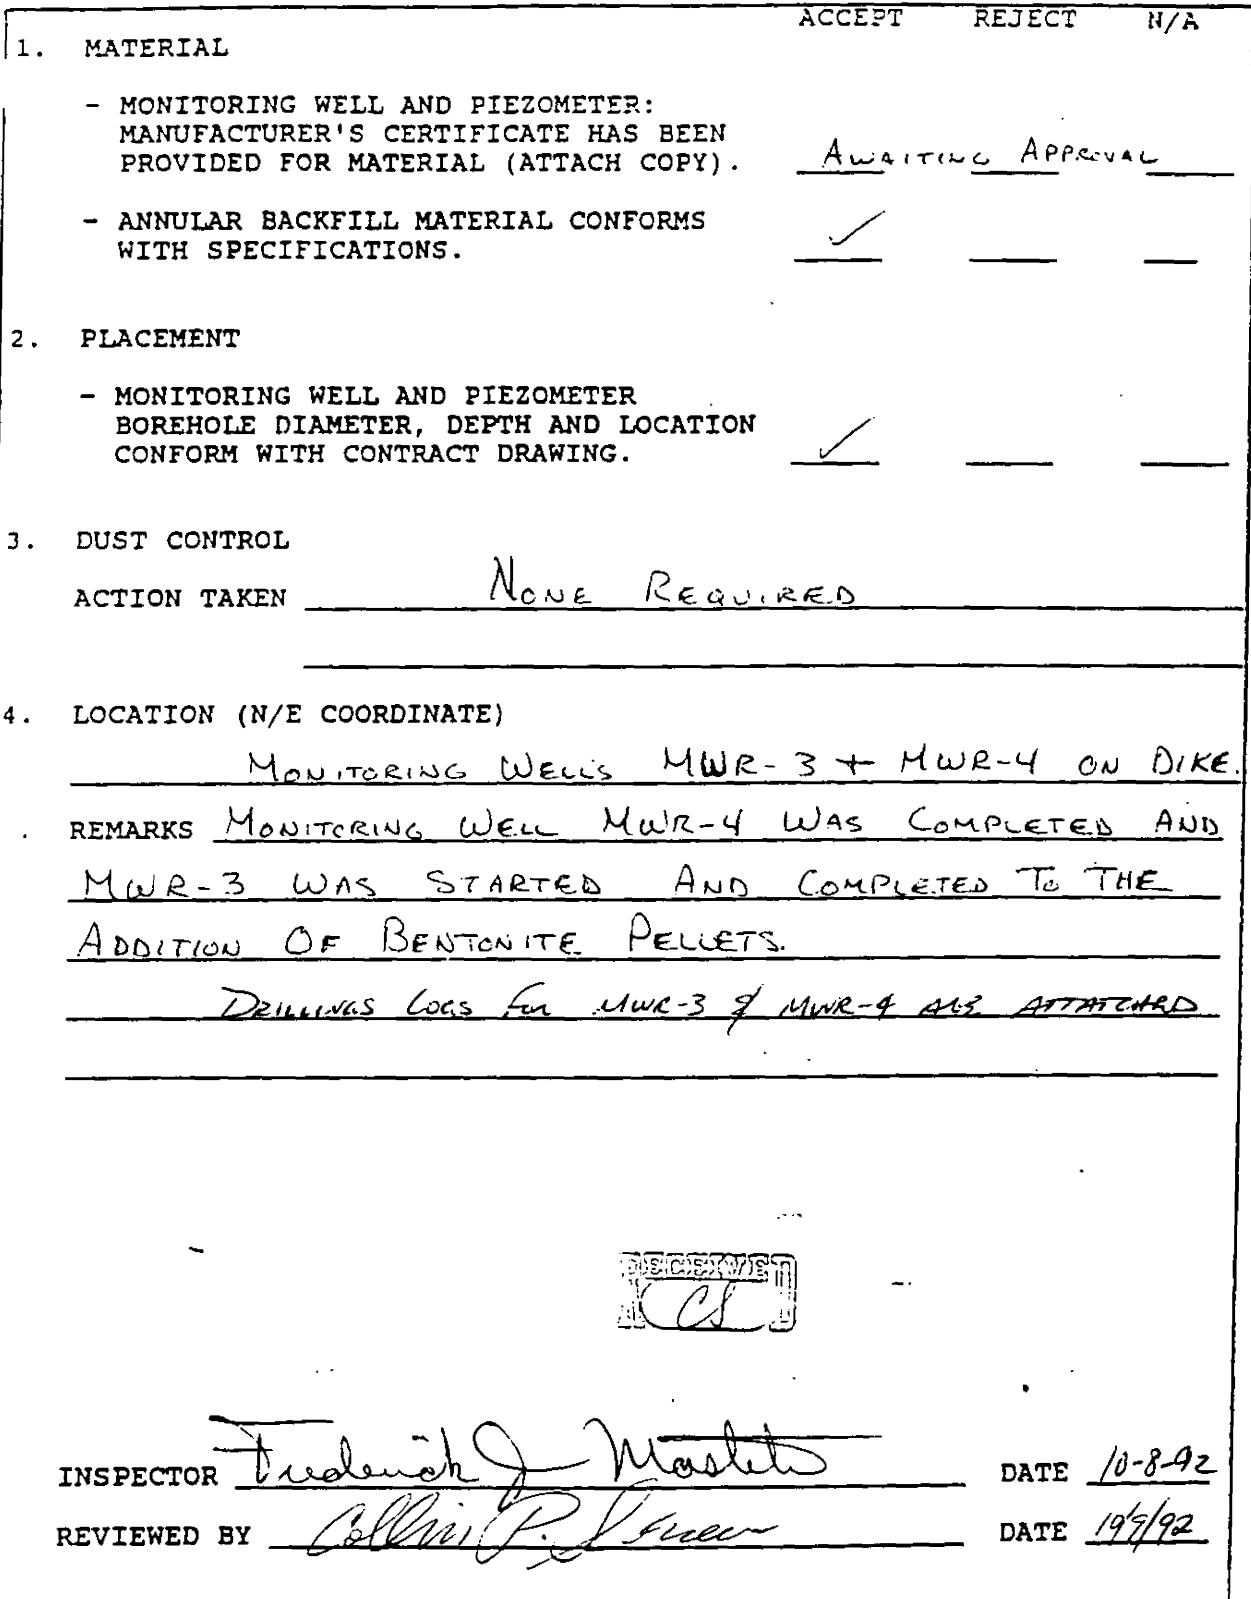 ACCEPT REJECT N/A
1. MATERIAL
- MONITORING WELL AND PIEZOMETER:
MANUFACTURER'S CERTIFICATE HAS BEEN
PROVIDED FOR MATERIAL (ATTACH COPY). AWAITING APPROVAL
- ANNULAR BACKFILL MATERIAL CONFORMS ✓
WITH SPECIFICATIONS.
2. PLACEMENT
- MONITORING WELL AND PIEZOMETER
BOREHOLE DIAMETER, DEPTH AND LOCATION
CONFORM WITH CONTRACT DRAWING. ✓
3. DUST CONTROL
ACTION TAKEN NONE REQUIRED
4. LOCATION (N/E COORDINATE)
MONITORING WELLS MWR-3 + MWR-4 ON DIKE.
REMARKS MONITORING WELL MWR-4 WAS COMPLETED AND
MWR-3 WAS STARTED AND COMPLETED TO THE
ADDITION OF BENTONITE PELLETS.
DRILLINGS LOGS FOR MWR-3 & MWR-4 ARE ATTATCHED
RECEIVED
CS
INSPECTOR Frederick J DATE 10-8-92
REVIEWED BY Collin P. DATE